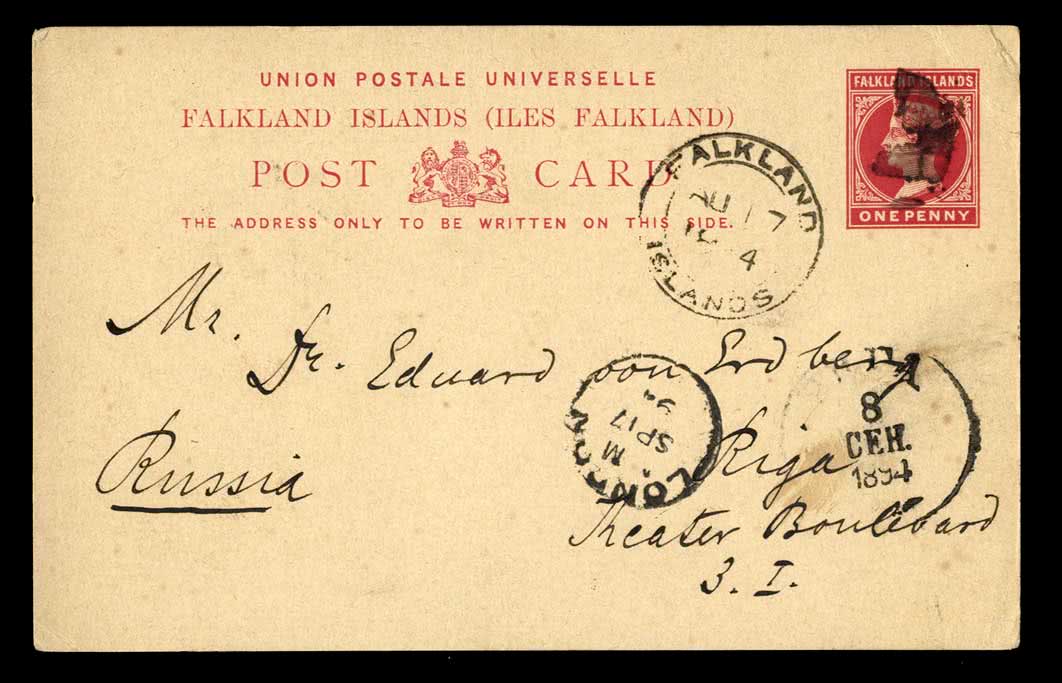 UNION POSTALE UNIVERSELLE
FALKLAND ISLANDS (ILES FALKLAND)
POST CARD
THE ADDRESS ONLY TO BE WRITTEN ON THIS SIDE.
FALKLAND ISLANDS
ONE PENNY
FALKLAND
AU 17
4
ISLANDS
Mr.
Dr. Eduard von Erdberg
LONDON
M
SP 17
94
8
СЕН.
1894
Russia
Riga
Theater Boulevard
3. I.